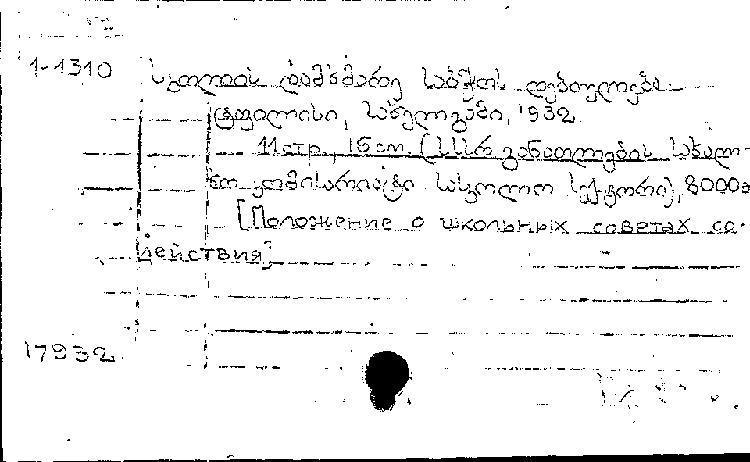 1-1310 სკოლის დამხმარე საბჭოს დებულება
ტფილისი, სახელგამი, 1932
11 стр., 15 см. (სსსრ განათლების სახალ-
ხო კომისარიატი. სასკოლო სექტორი), 8000 ა
[Положение о школьных советах со-
действия]
17932